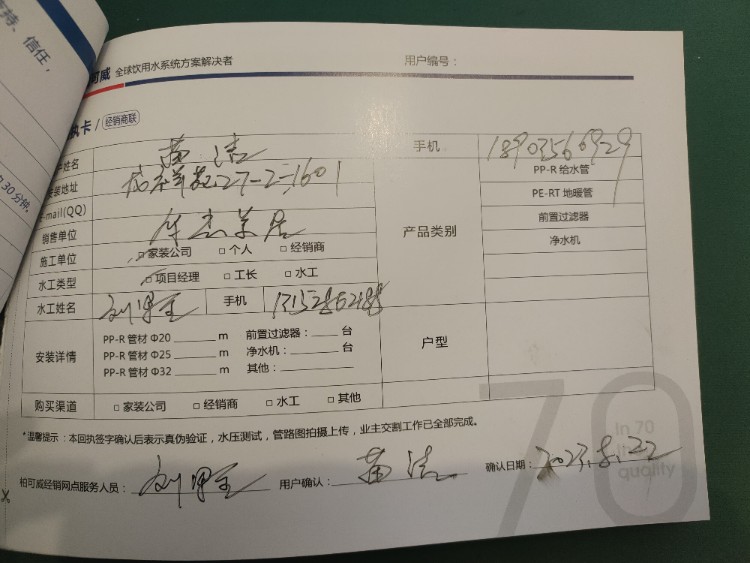 持、信任,
30分钟。
可威 全球饮用水系统方案解决者 用户编号：
执卡 / 经销商联
姓名 苗洁 手机 18903566929
装地址 27-2-1601 产品类别 PP-R 给水管
E-mail(QQ) PE-RT 地暖管
销售单位 华杰美居 前置过滤器
施工单位 □家装公司 □个人 □经销商 净水机
水工类型 □项目经理 □工长 □水工
水工姓名 手机
安装详情 PP-R 管材 Φ20 ______ m 前置过滤器：____ 台 户型
PP-R 管材 Φ25 ______ m 净水机：____ 台
PP-R 管材 Φ32 ______ m 其他：____
购买渠道 □家装公司 □经销商 □水工 □其他
*温馨提示：本回执签字确认后表示真伪验证，水压测试，管路图拍摄上传，业主交割工作已全部完成。
柏可威经销网点服务人员： 用户确认：苗洁 确认日期：2023.8.22
70
in 70
quality